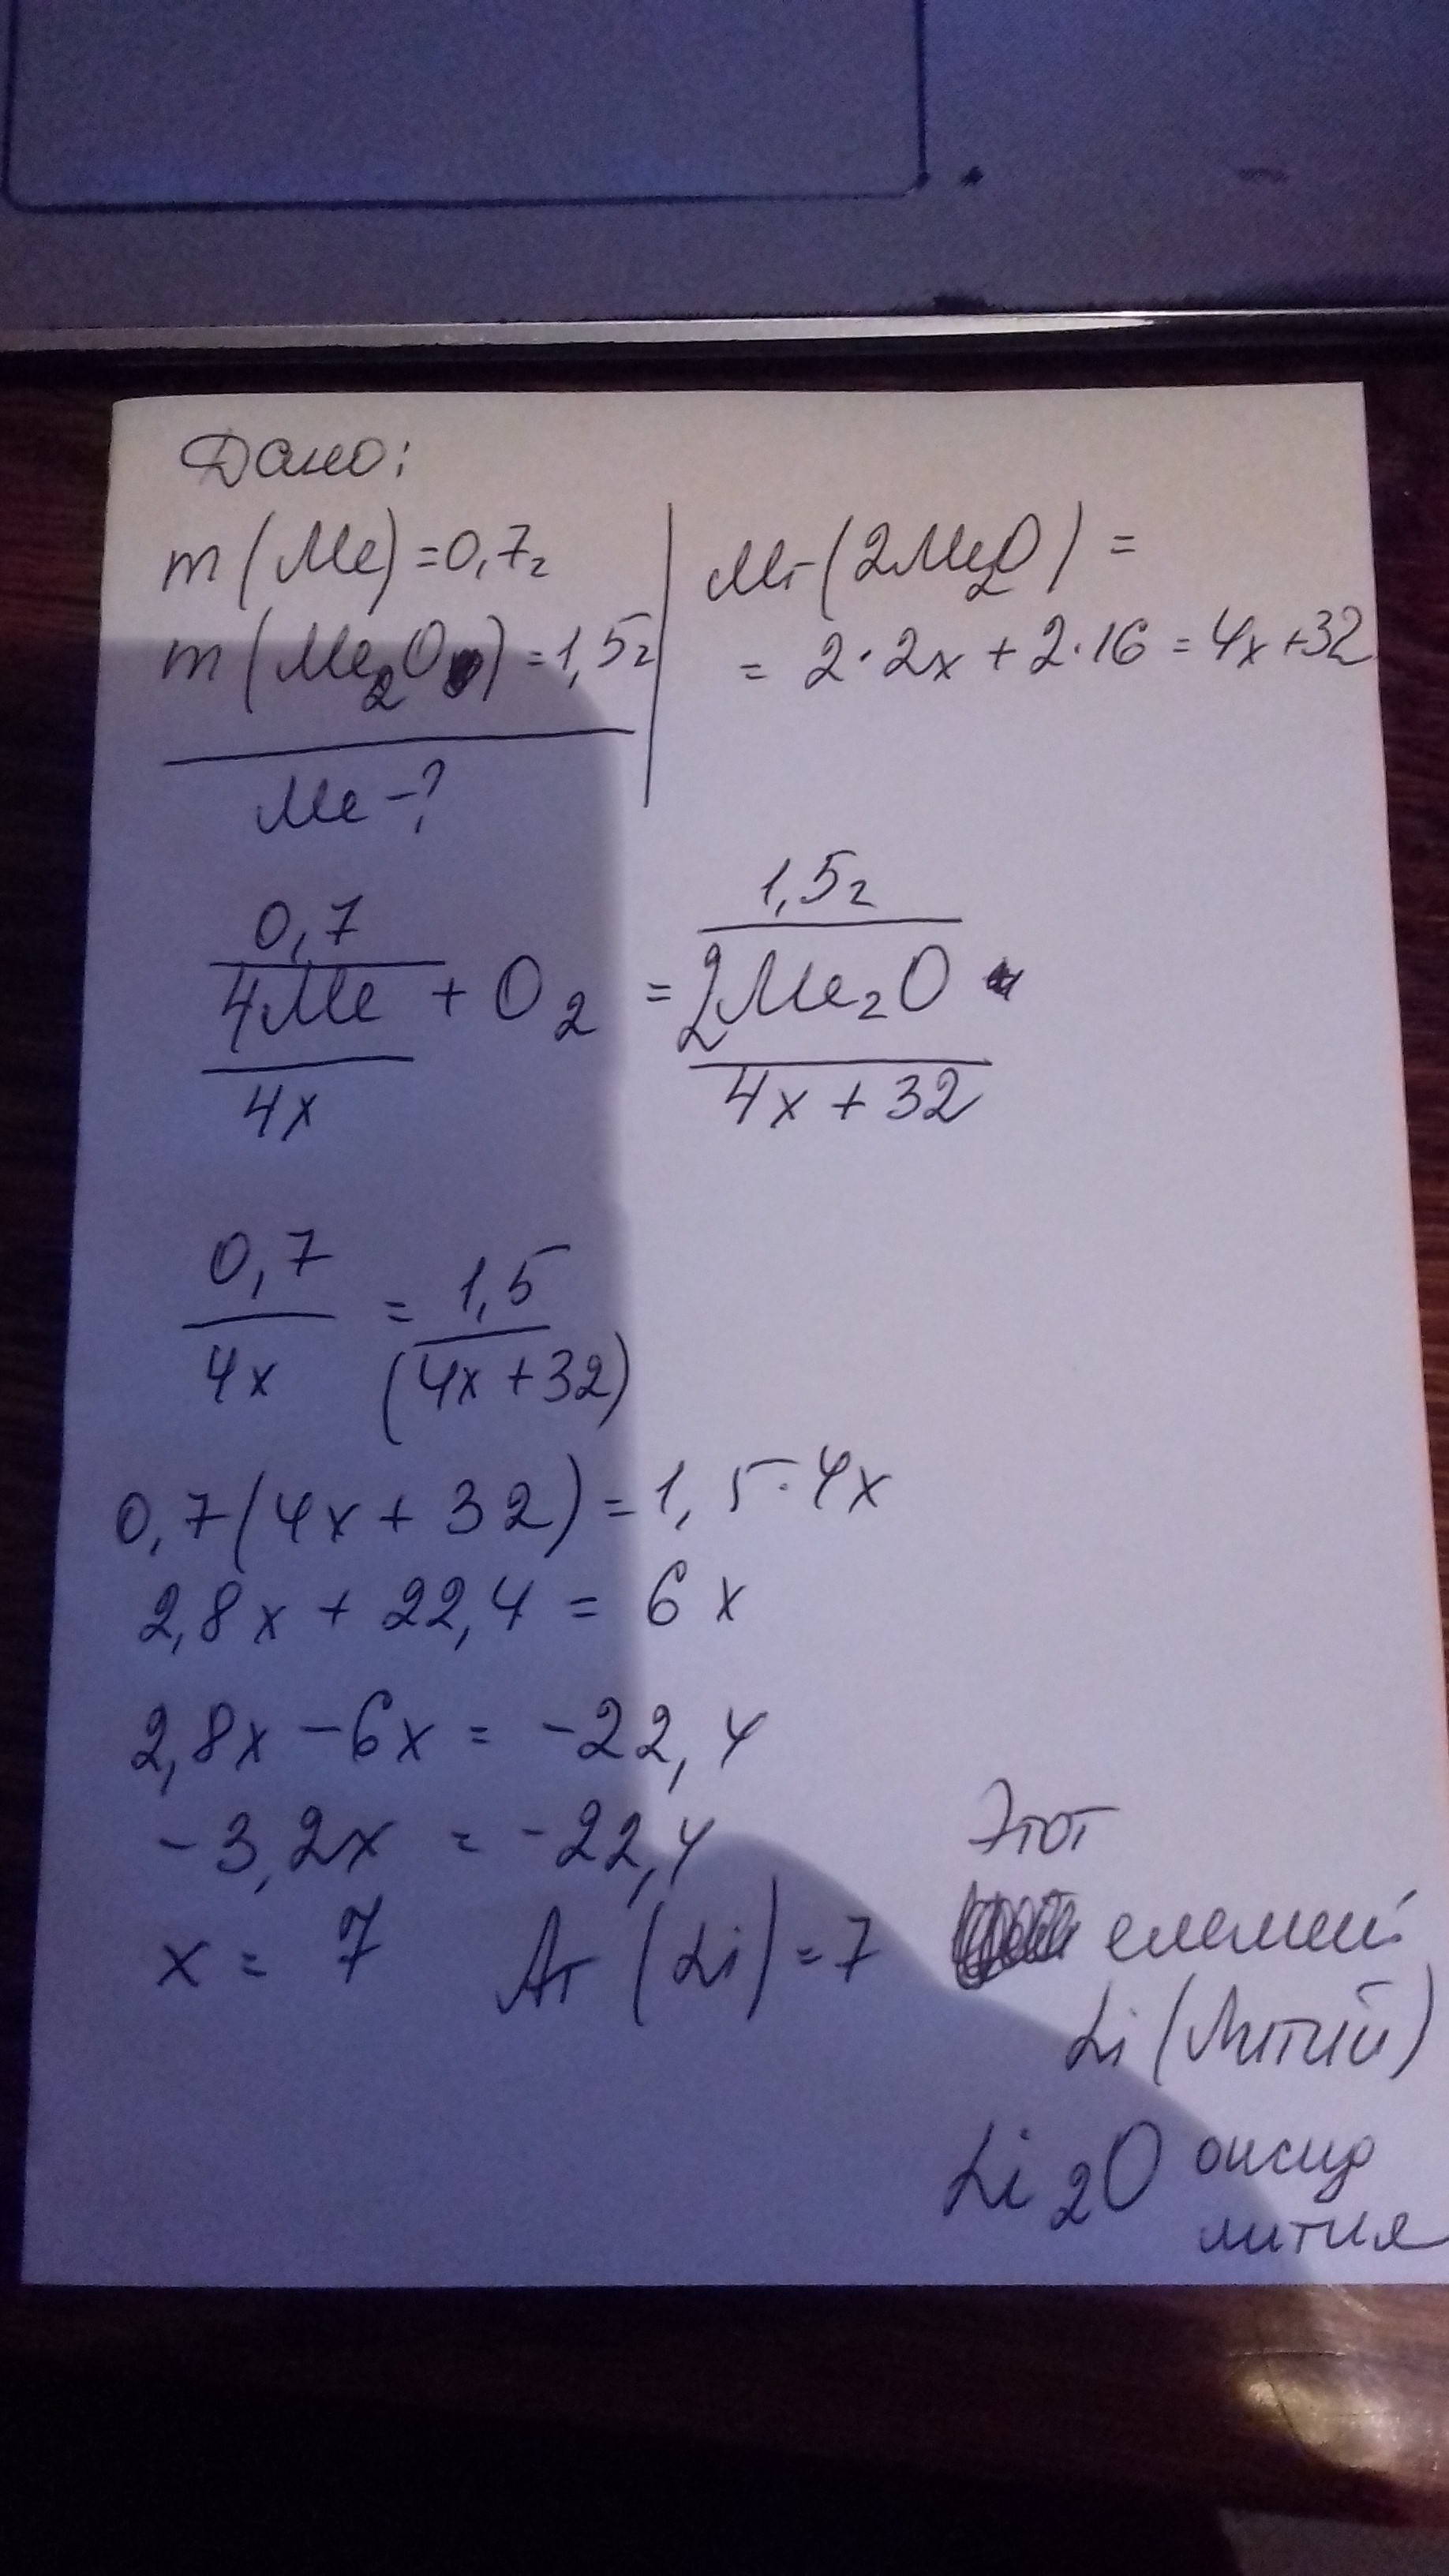 Дано:
m(Me) = 0,7г
m(Me₂O) = 1,5г
Me - ?
Mr(2Me₂O) =
= 2·2x + 2·16 = 4x + 32
0,7 1,5г
4Me + O₂ = 2Me₂O
4x 4x + 32
0,7 = 1,5
4x (4x + 32)
0,7(4x + 32) = 1,5·4x
2,8x + 22,4 = 6x
2,8x - 6x = -22,4
-3,2x = -22,4
x = 7 Ar(Li) = 7
Этот
Li (Литий)
Li₂O оксид
лития